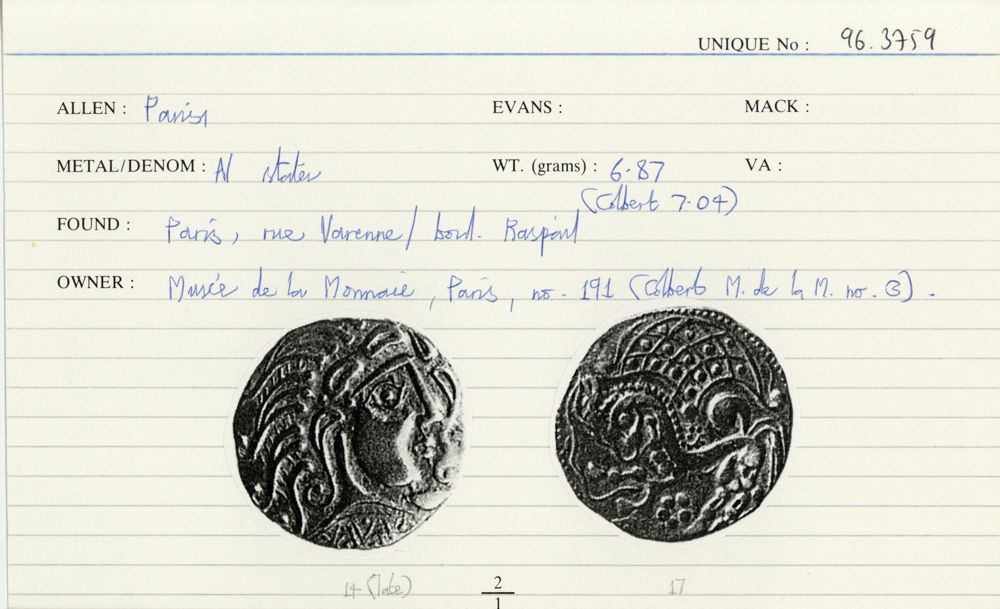 UNIQUE No : 96.3759
ALLEN : Parisi EVANS : MACK :
METAL/DENOM : AV stater WT. (grams) : 6.87 VA :
(Colbert 7.04)
FOUND : Paris, rue Varenne / boul. Raspail
OWNER : Musée de la Monnaie, Paris, no. 191 (Colbert M. de la M. no. 3).
14 (late) 2 17
1